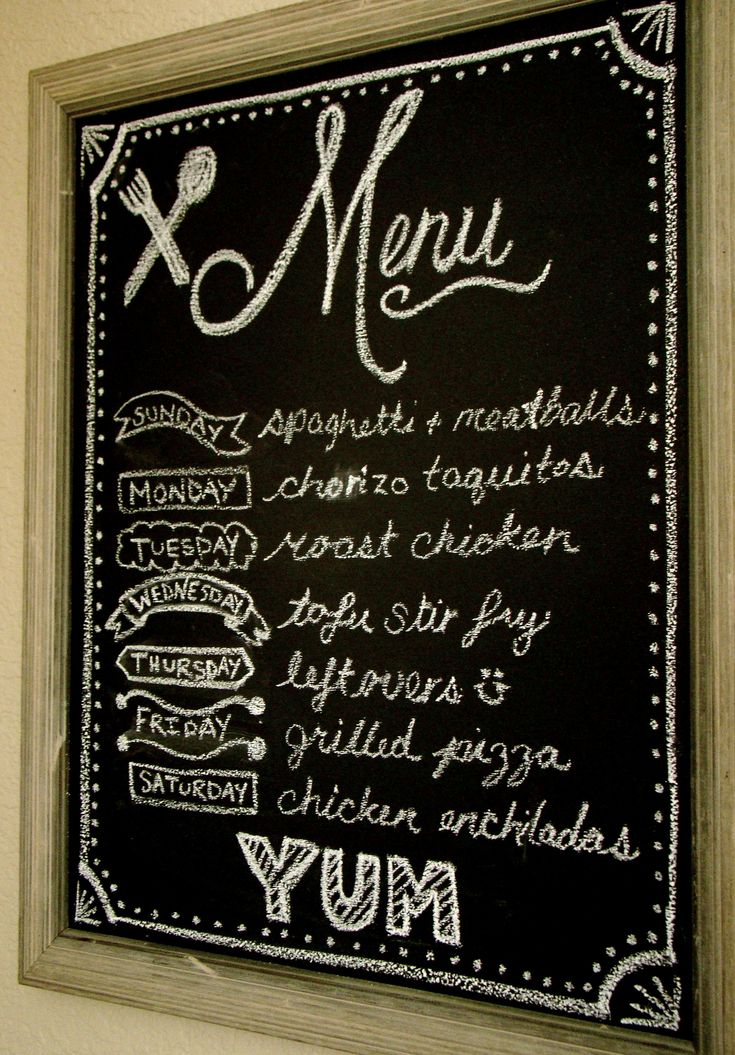 Menu
SUNDAY spaghetti + meatballs
MONDAY chorizo taquitos
TUESDAY roast chicken
WEDNESDAY tofu stir fry
THURSDAY leftovers
FRIDAY grilled pizza
SATURDAY chicken enchiladas
YUM